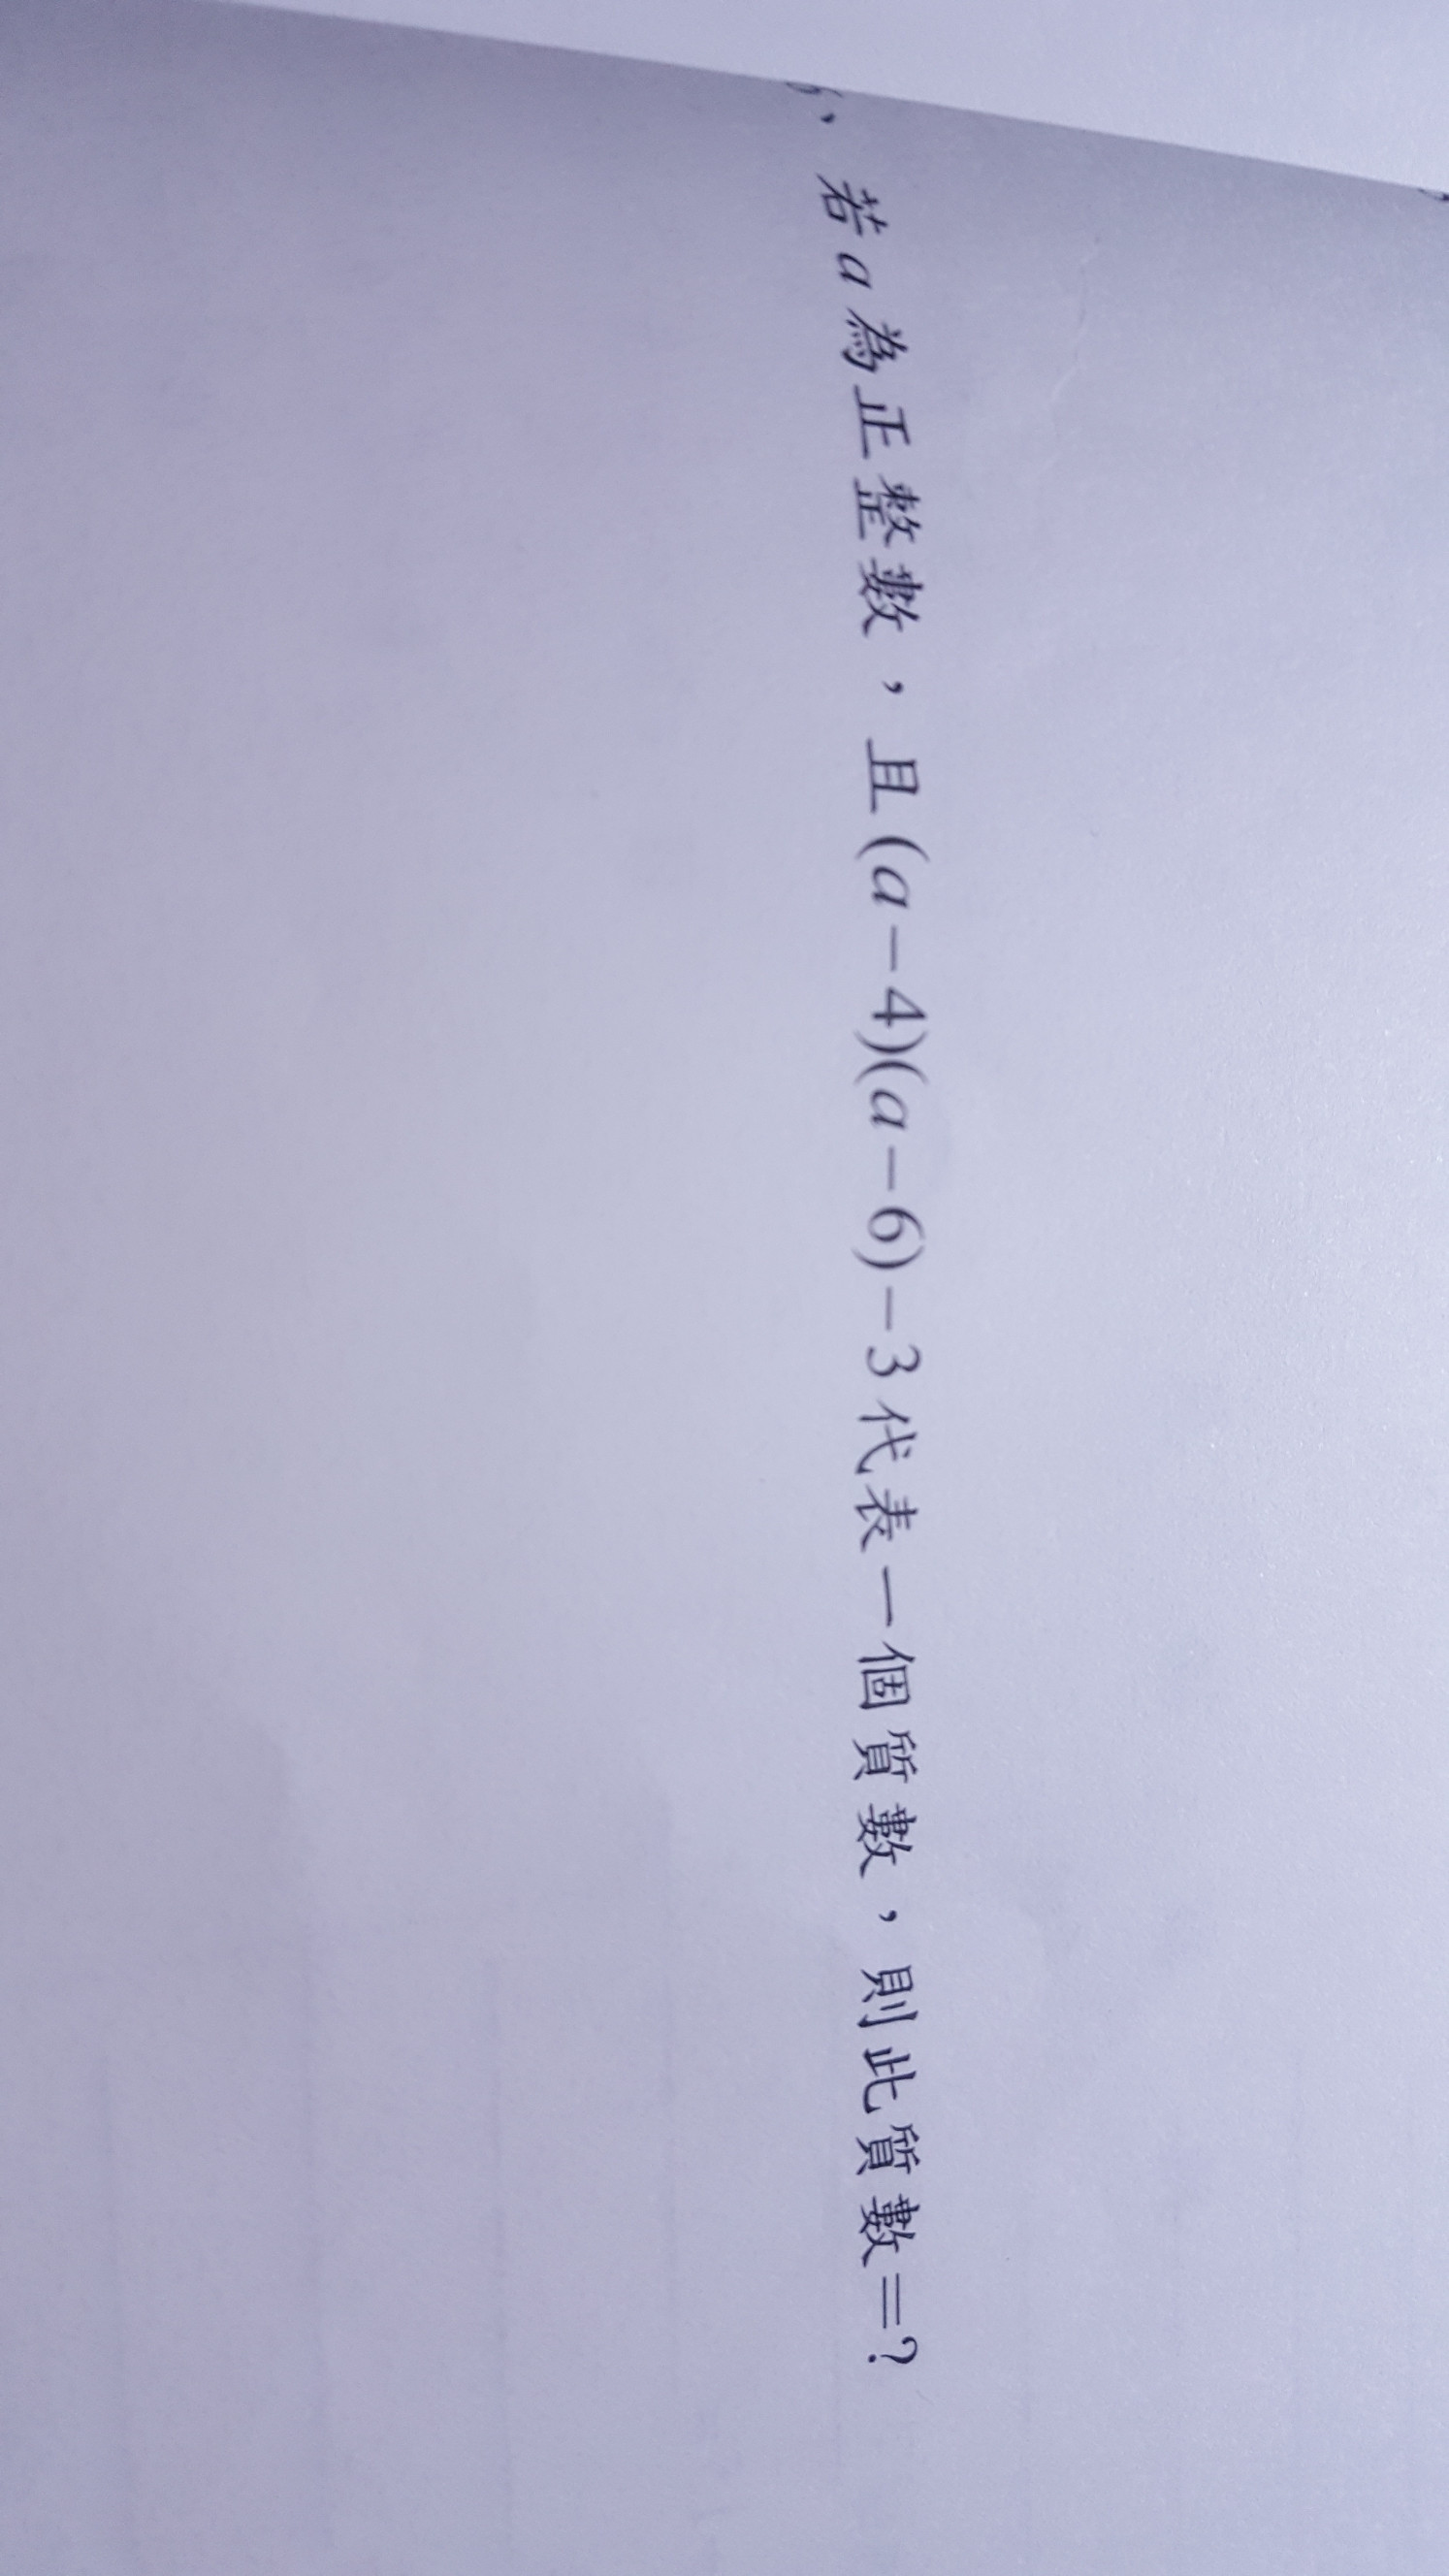 、若a為正整數，且(a－4)(a－6)－3代表一個質數，則此質數=?